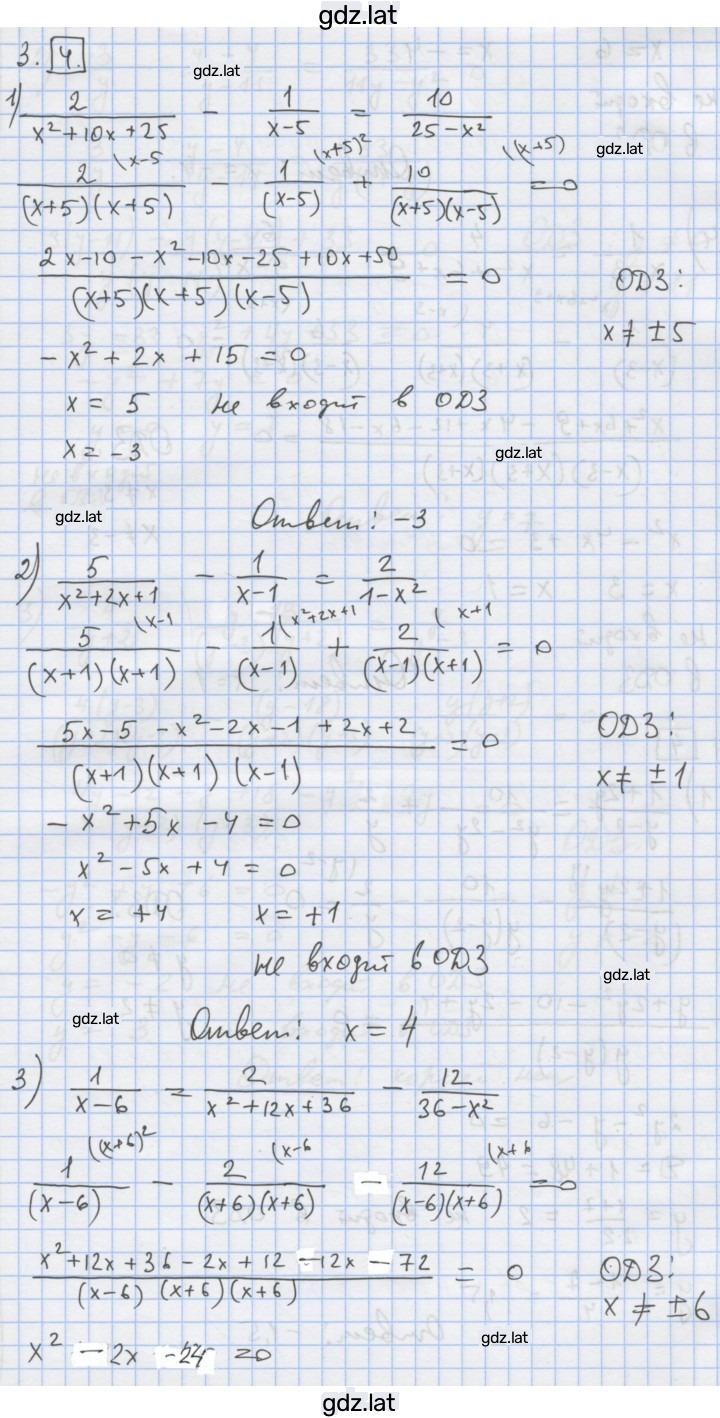 gdz.lat
3. 4.
gdz.lat
1) 2/(x²+10x+25) - 1/(x-5) = 10/(25-x²)
gdz.lat
2/((x+5)(x+5)) (x-5 - 1/(x-5) (x+5)² + 10/((x+5)(x-5)) ((x+5) = 0
(2x-10-x²-10x-25+10x+50)/((x+5)(x+5)(x-5)) = 0 ОДЗ:
x ≠ ±5
-x²+2x+15=0
x = 5 не входит в ОДЗ
x = -3
gdz.lat
gdz.lat
Ответ: -3
2) 5/(x²+2x+1) - 1/(x-1) = 2/(1-x²)
5/((x+1)(x+1)) (x-1 - 1/(x-1) (x²+2x+1 + 2/((x-1)(x+1)) (x+1 = 0
(5x-5-x²-2x-1+2x+2)/((x+1)(x+1)(x-1)) = 0 ОДЗ:
x ≠ ±1
-x²+5x-4=0
x²-5x+4=0
x = +4 x = +1
не входит в ОДЗ
gdz.lat
gdz.lat
Ответ: x = 4
3) 1/(x-6) = 2/(x²+12x+36) - 12/(36-x²)
1/(x-6) ((x+6)² - 2/((x+6)(x+6)) (x-6 - 12/((x-6)(x+6)) (x+6 = 0
(x²+12x+36-2x+12-12x-72)/((x-6)(x+6)(x+6)) = 0 ОДЗ:
x ≠ ±6
gdz.lat
x²-2x-24=0
gdz.lat